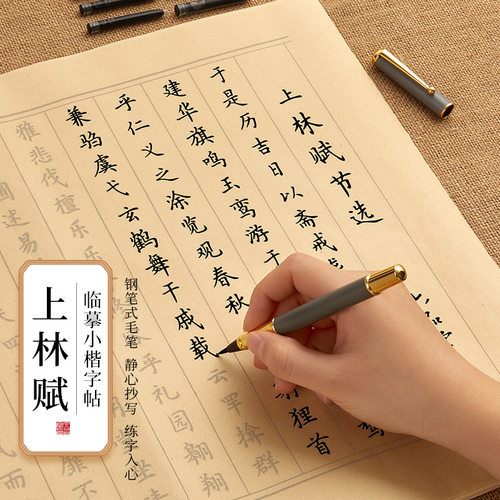 上林赋节选
于是历吉日以斋戒
驾
建华旗鸣玉鸾游于
乎仁义之涂览观春秋
狸首
兼驺虞弋玄鹤舞干戚载云罕揜群
雅悲伐檀乐乐
乎礼园翱翔
临摹小楷字帖
上林赋
钢笔式毛笔 静心抄写 练字入心